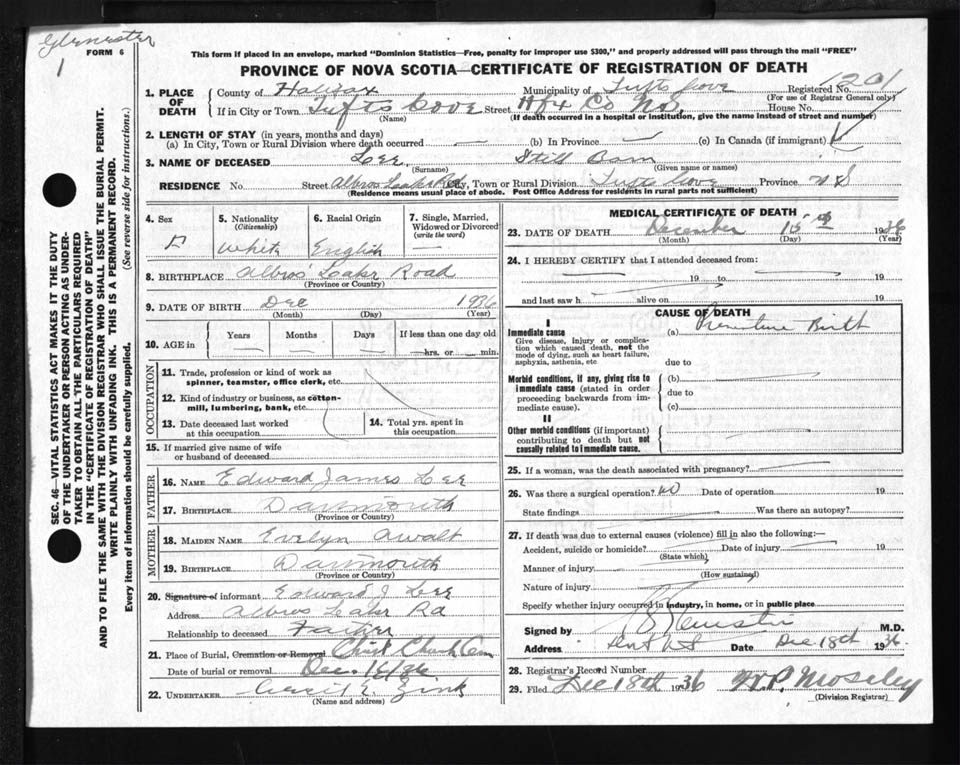 FORM 6
1
This form if placed in an envelope, marked "Dominion Statistics—Free, penalty for improper use $300," and properly addressed will pass through the mail "FREE"
PROVINCE OF NOVA SCOTIA—CERTIFICATE OF REGISTRATION OF DEATH
1. PLACE OF DEATH
County of Halifax Municipality of Tufts Cove Registered No. 1201
(For use of Registrar General only)
If in City or Town Tufts Cove Street Hfx Co NS House No.
(Name) (If death occurred in a hospital or institution, give the name instead of street and number)
2. LENGTH OF STAY (in years, months and days)
(a) In City, Town or Rural Division where death occurred — (b) In Province — (c) In Canada (if immigrant)
3. NAME OF DECEASED Lee, Still Born
(Surname) (Given name or names)
RESIDENCE No. Street Albros Lake Rd City, Town or Rural Division Tufts Cove Province N S
(Residence means usual place of abode. Post Office Address for residents in rural parts not sufficient)
4. Sex
5. Nationality (Citizenship) White
6. Racial Origin English
7. Single, Married, Widowed or Divorced (write the word) —
8. BIRTHPLACE Albros Lake Road
(Province or Country)
9. DATE OF BIRTH Dec 1936
(Month) (Day) (Year)
10. AGE in Years Months Days If less than one day old
hrs. or min.
OCCUPATION
11. Trade, profession or kind of work as spinner, teamster, office clerk, etc.
12. Kind of industry or business, as cotton-mill, lumbering, bank, etc.
13. Date deceased last worked at this occupation
14. Total yrs. spent in this occupation
15. If married give name of wife or husband of deceased
FATHER
16. NAME Edward James Lee
17. BIRTHPLACE Dartmouth
(Province or Country)
MOTHER
18. MAIDEN NAME Evelyn Awalt
19. BIRTHPLACE Dartmouth
(Province or Country)
20. Signature of informant Edward J Lee
Address Albros Lake Rd
Relationship to deceased Father
21. Place of Burial, Cremation or Removal Christ Church Cem
Date of burial or removal Dec. 16/36
22. UNDERTAKER Cecil E Zink
(Name and address)
MEDICAL CERTIFICATE OF DEATH
23. DATE OF DEATH December 15th 1936
(Month) (Day) (Year)
24. I HEREBY CERTIFY that I attended deceased from:
19 to 19
and last saw h alive on 19
CAUSE OF DEATH
I
Immediate cause
Give disease, injury or complication which caused death, not the mode of dying, such as heart failure, asphyxia, asthenia, etc
(a) Premature Birth
due to
Morbid conditions, if any, giving rise to immediate cause (stated in order proceeding backwards from immediate cause).
(b)
due to
(c)
II
Other morbid conditions (if important) contributing to death but not causally related to immediate cause.
25. If a woman, was the death associated with pregnancy?
26. Was there a surgical operation? NO Date of operation 19
State findings Was there an autopsy?
27. If death was due to external causes (violence) fill in also the following:—
Accident, suicide or homicide? Date of injury 19
(State which)
Manner of injury
(How sustained)
Nature of injury
Specify whether injury occurred in industry, in home, or in public place
Signed by M.D.
Address Date Dec 18th 1936
28. Registrar's Record Number
29. Filed Dec 18th 1936 W.P. Moseley
(Division Registrar)
SEC. 46—VITAL STATISTICS ACT MAKES IT THE DUTY
OF THE UNDERTAKER OR PERSON ACTING AS UNDER-
TAKER TO OBTAIN ALL THE PARTICULARS REQUIRED
IN THE "CERTIFICATE OF REGISTRATION OF DEATH"
AND TO FILE THE SAME WITH THE DIVISION REGISTRAR WHO SHALL ISSUE THE BURIAL PERMIT.
WRITE PLAINLY WITH UNFADING INK. THIS IS A PERMANENT RECORD.
Every item of information should be carefully supplied. (See reverse side for instructions.)